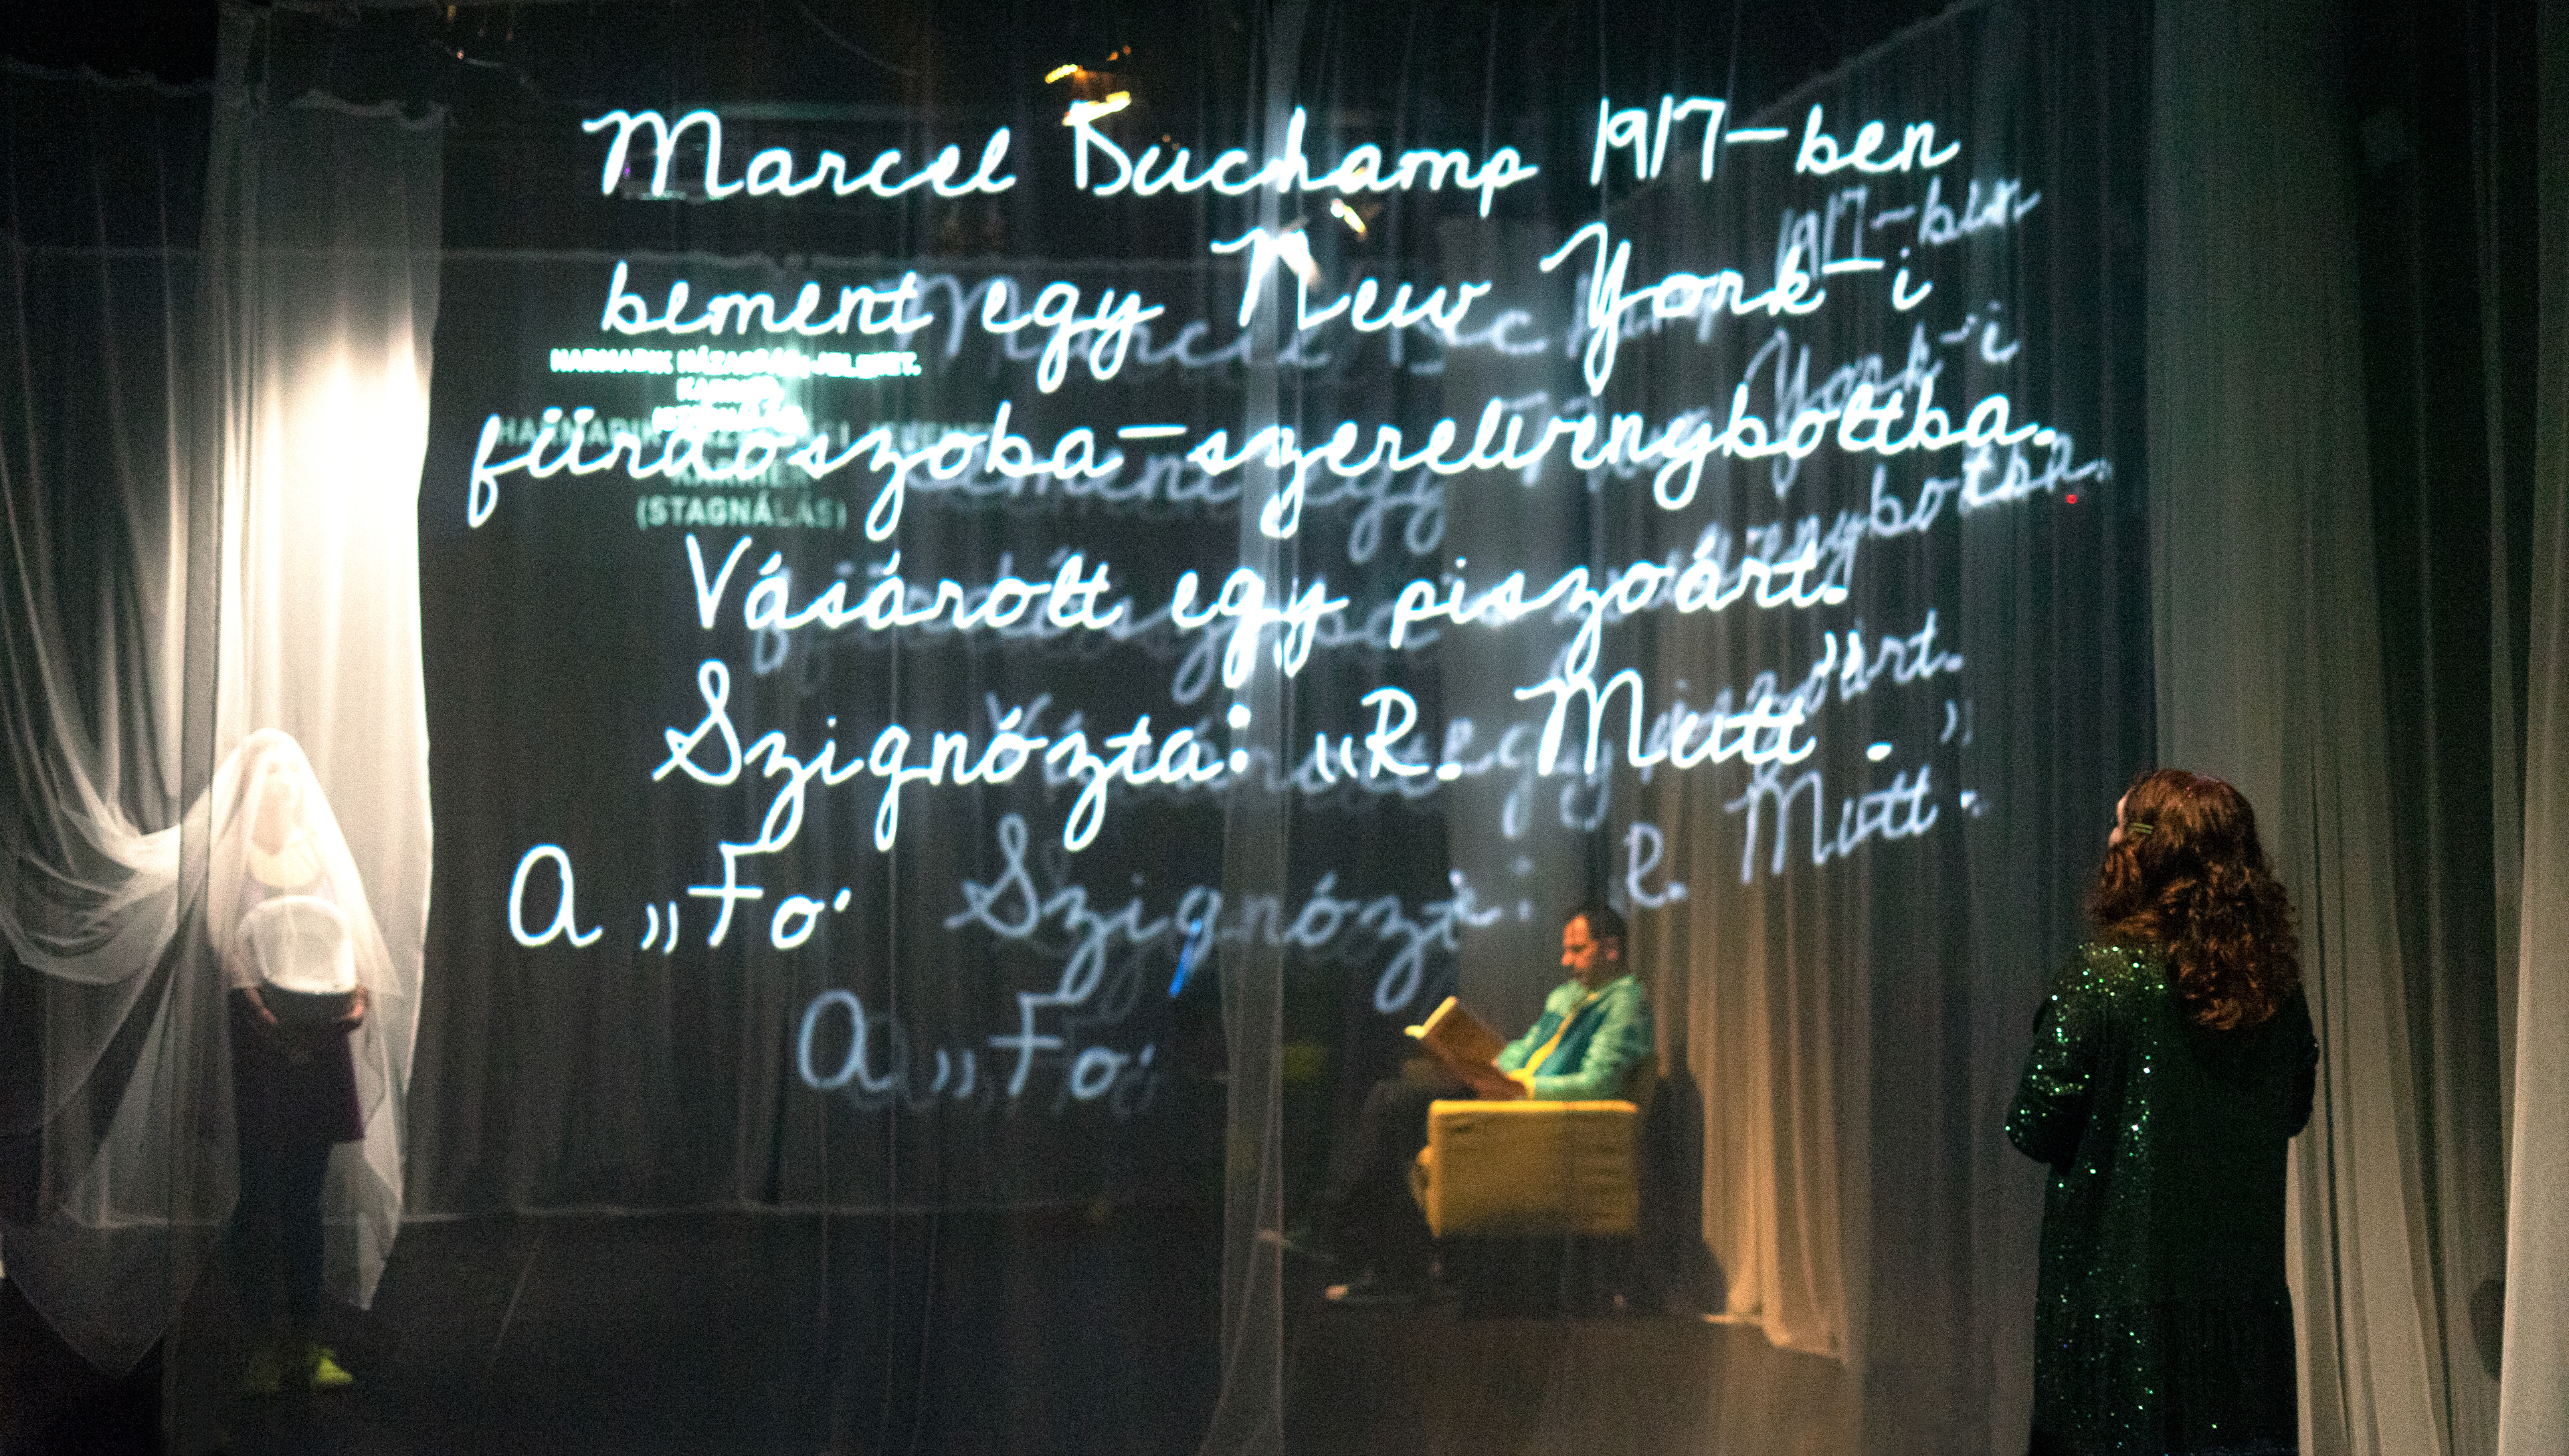 Marcel Duchamp 1917-ben
bement egy New York-i
HARMADIK HÁZASSÁG-JELENET.
KARRIER
(STAGNÁLÁS)
fürdőszoba-szerelvényboltba.
Vásárolt egy piszoárt.
Szignózta: „R. Mutt.”
A „Fo